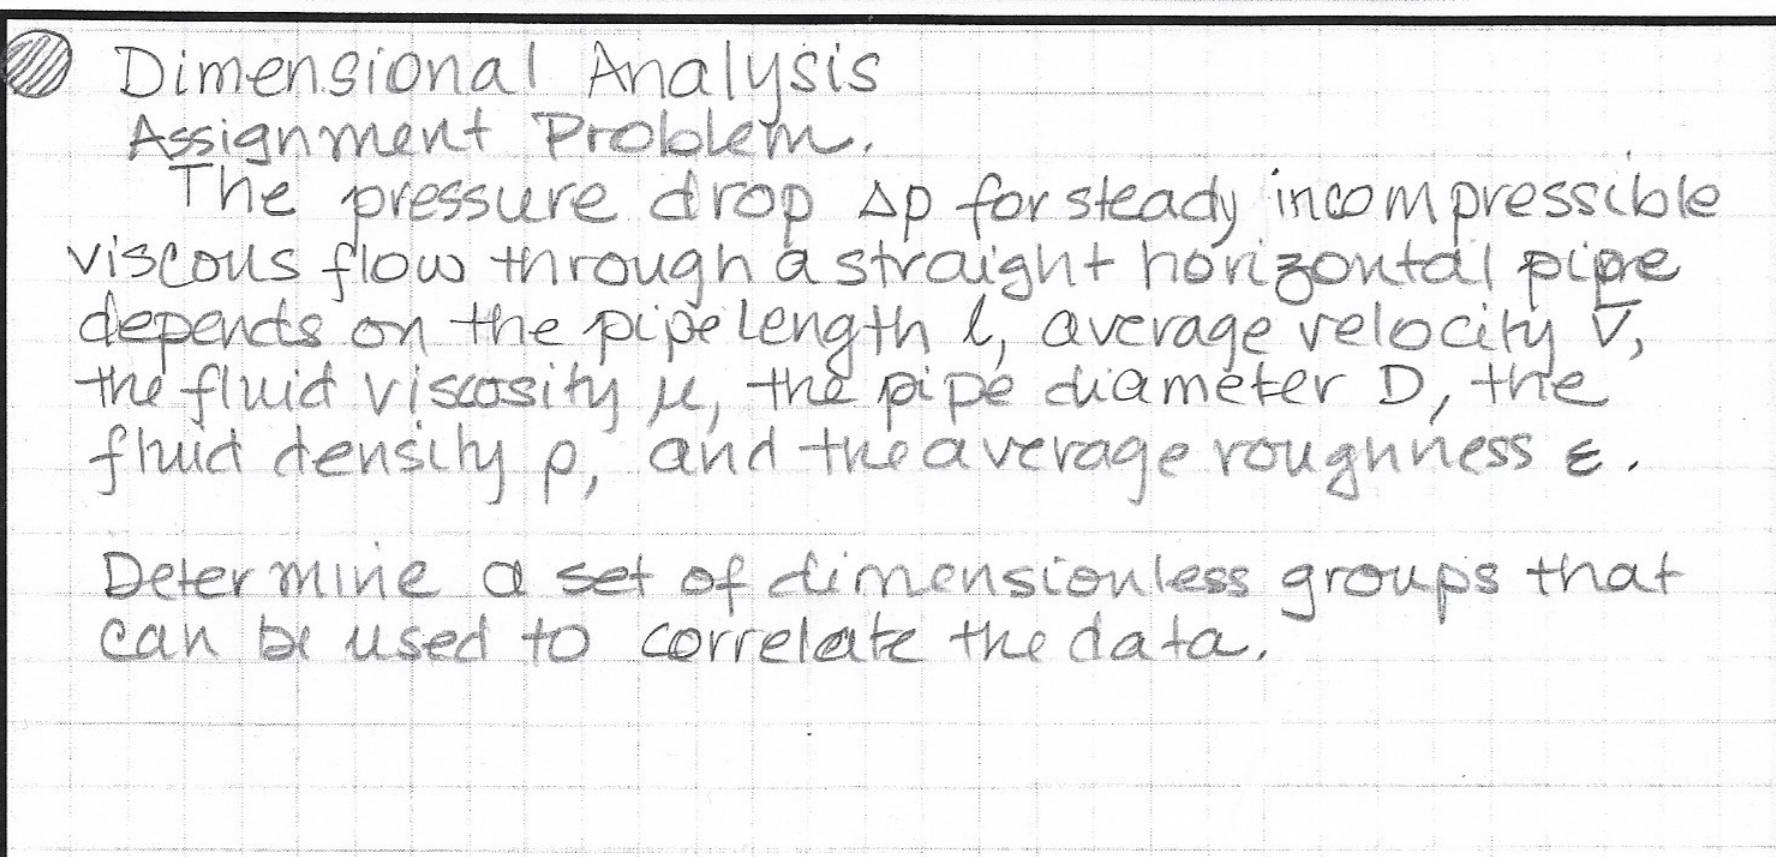 Dimensional Analysis
Assignment Problem.
The pressure drop Δp for steady incompressible
viscous flow through a straight horizontal pipe
depends on the pipe length l, average velocity V̅,
the fluid viscosity μ, the pipe diameter D, the
fluid density ρ, and the average roughness ε.
Determine a set of dimensionless groups that
can be used to correlate the data.